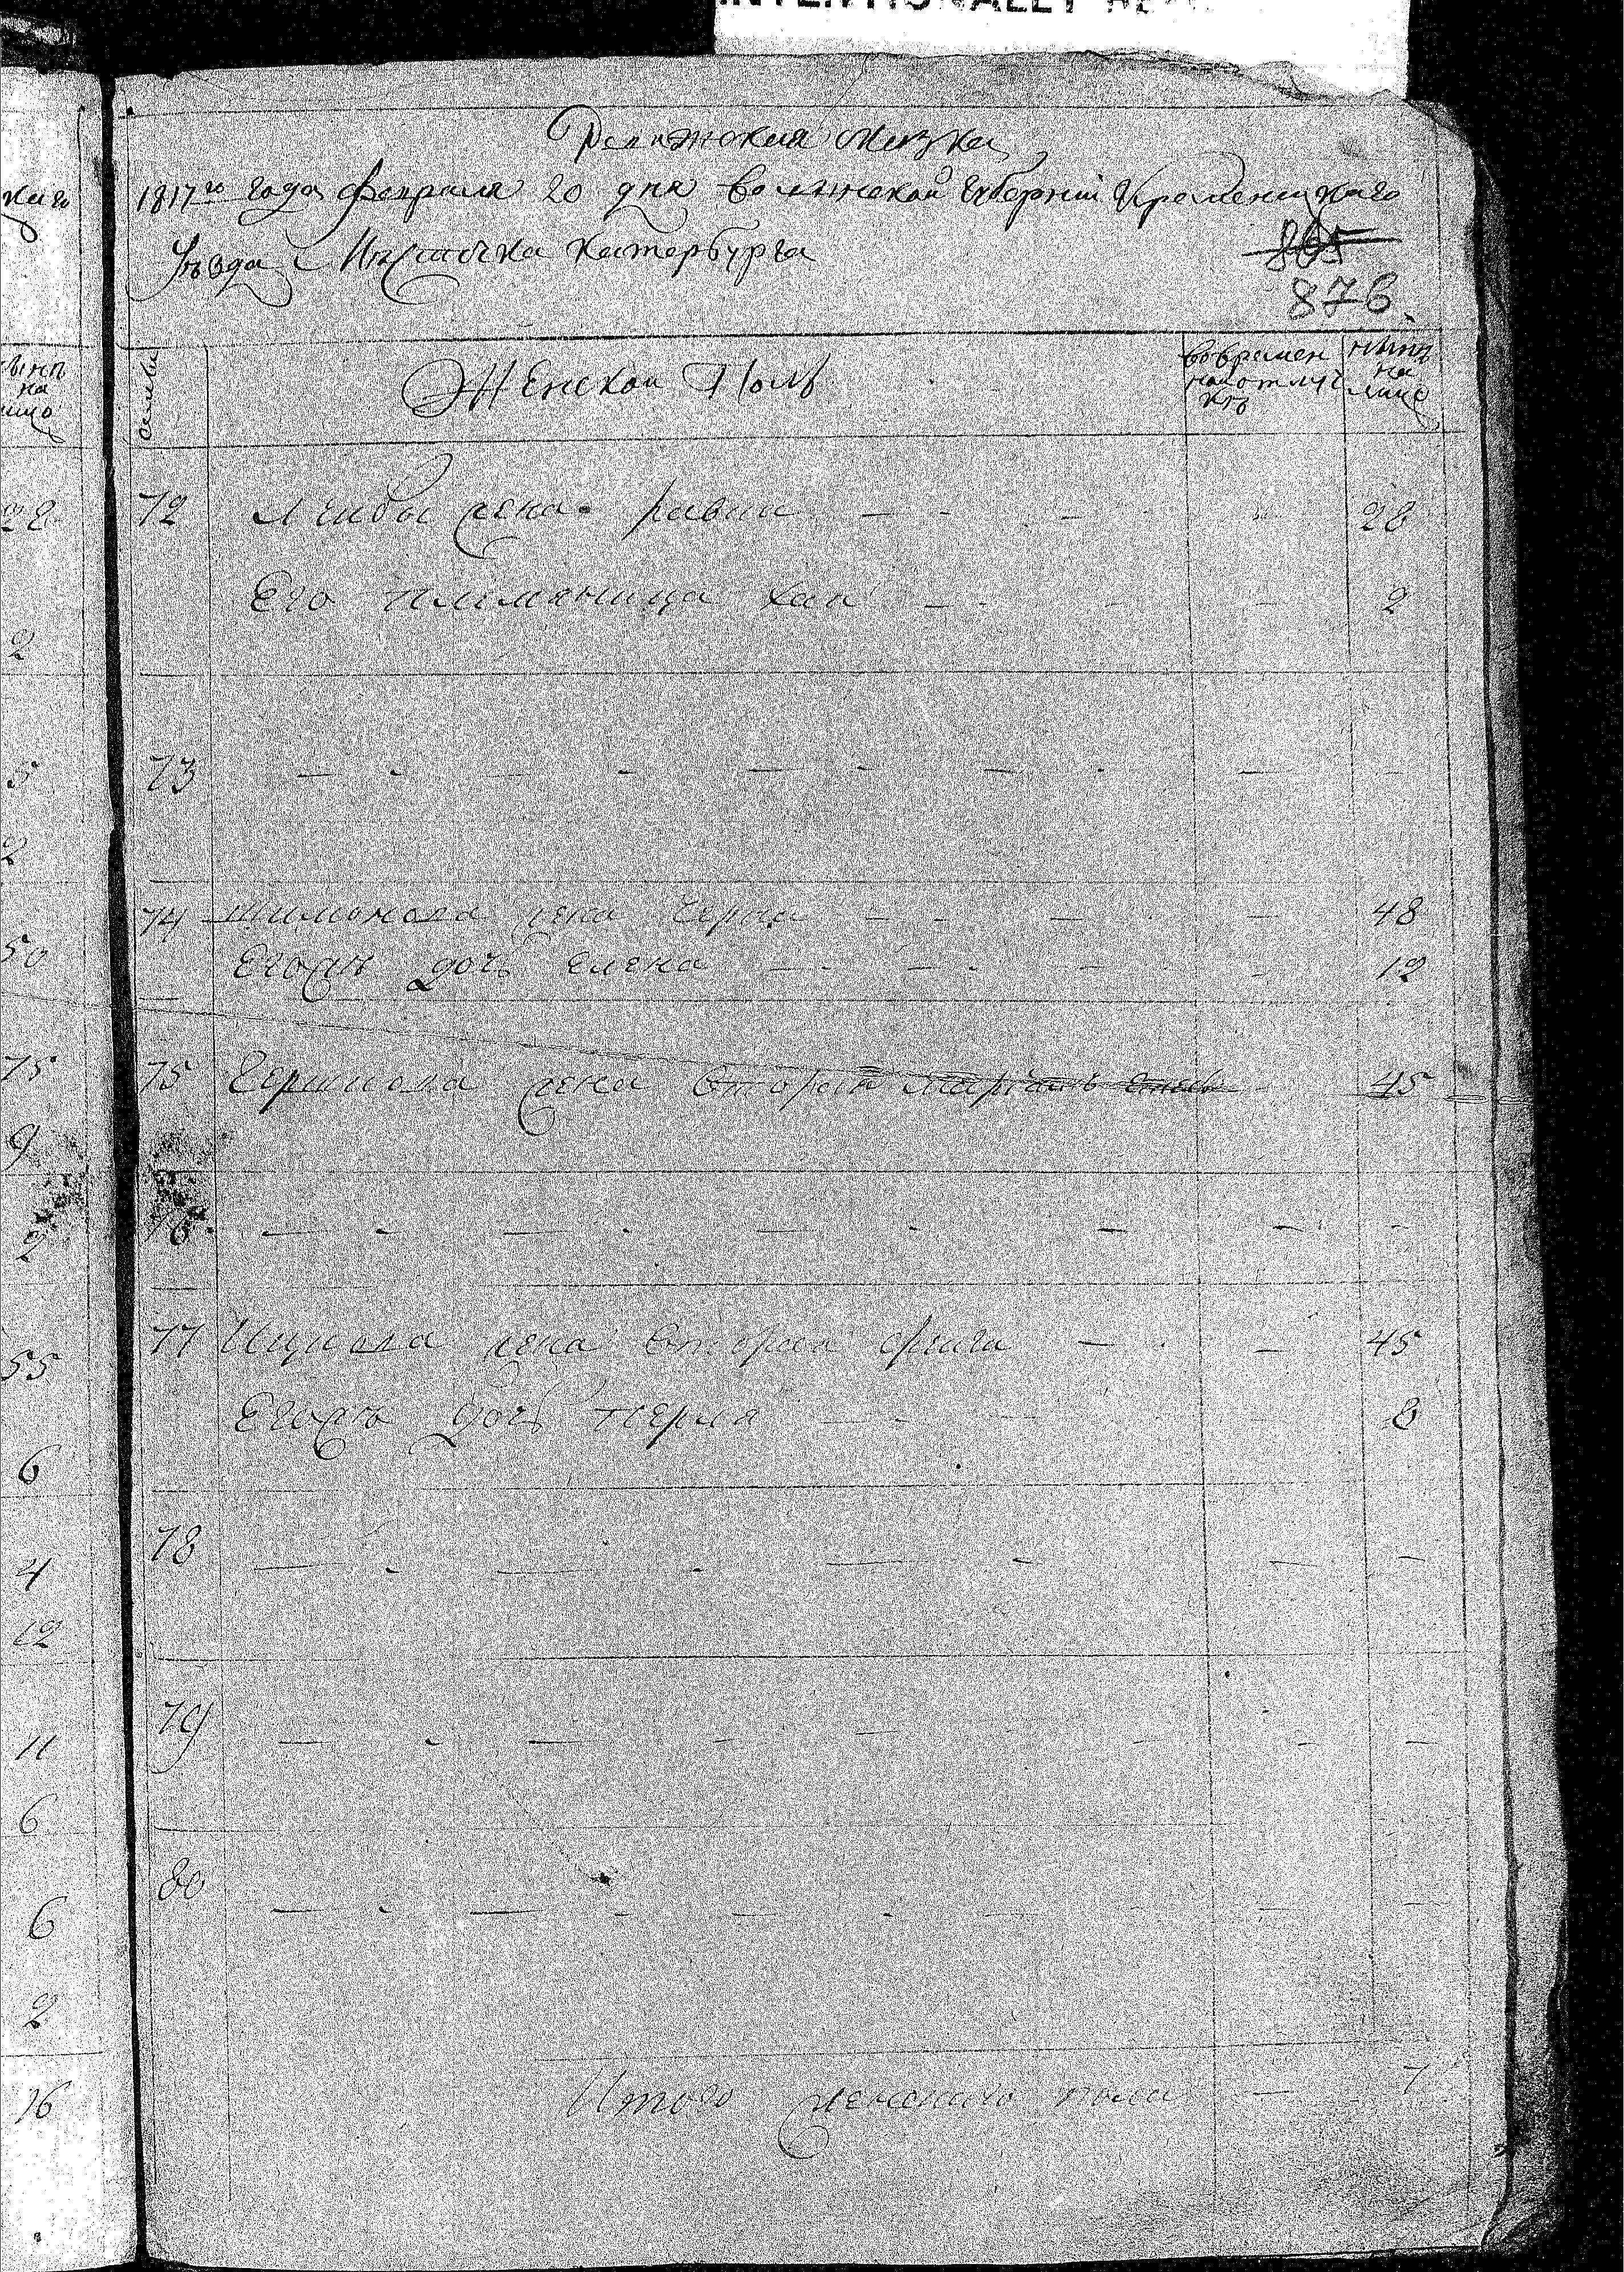 Ревижская сказка
1817го года февраля 20 дня волынской Губернии Кременецкаго
уезда Местечка Катербурга
865
876.
семьи
Женской Полъ
во времен
ной отлуч
кѣ
нынѣ
на
лицо
72 Лейбы жена ривка — 28
Его племяница хая — 2
73
74 жена — 48
Егожъ дочь елена — 12
75 Гершкова жена вторая 45
76
77 Ицкова жена вторая фрига — 45
Егожъ дочь перла — 8
78
79
80
Итого женского пола — 7
каго
нынѣ
на
лицо
28
2
5
2
50
75
9
2
55
6
4
12
11
6
6
2
16